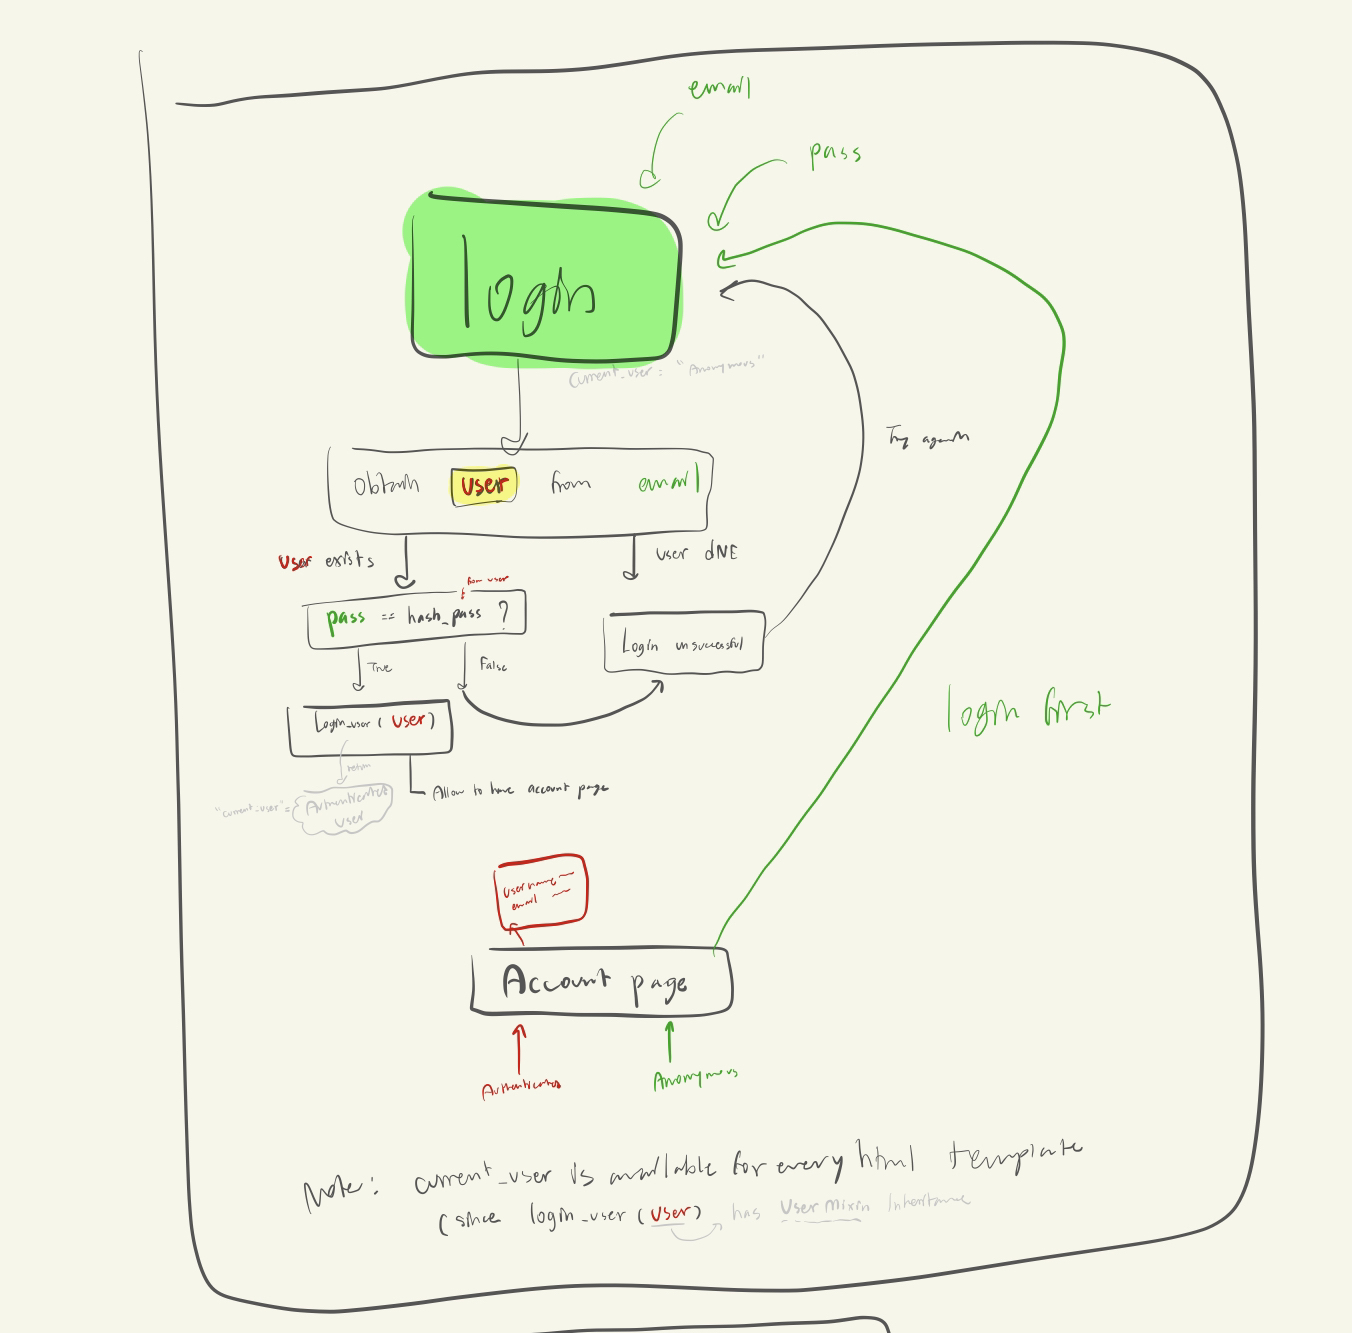 email
pass
login
Current_user: "Anonymous"
Try again
Obtain user from email
user exists
user dNE
from user
pass == hash_pass ?
Login unsuccessful
True
False
Login_user (user)
return
"current_user" = Authenticated
user
Allow to have account page
login first
username
email
Account page
Authenticated
Anonymous
Note: current_user is available for every html template
(since login_user (user) has UserMixin Inheritance